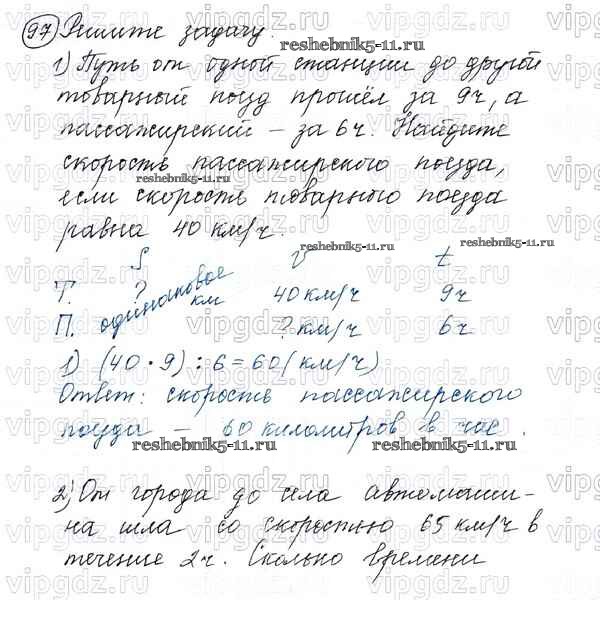 97 Решите задачу.
1) Путь от одной станции до другой
товарный поезд прошёл за 9ч, а
пассажирский – за 6ч. Найдите
скорость пассажирского поезда,
если скорость товарного поезда
равна 40 км/ч.
S v t
Т. ? одинаковое км 40 км/ч 9ч
П. ? км/ч 6ч
1) (40 • 9) : 6 = 60 (км/ч)
Ответ: скорость пассажирского
поезда – 60 километров в час.
2) От города до села автомаши-
на шла со скоростью 65 км/ч в
течение 2ч. Сколько времени
reshebnik5-11.ru
reshebnik5-11.ru
reshebnik5-11.ru
reshebnik5-11.ru
reshebnik5-11.ru
reshebnik5-11.ru
vipgdz.ru